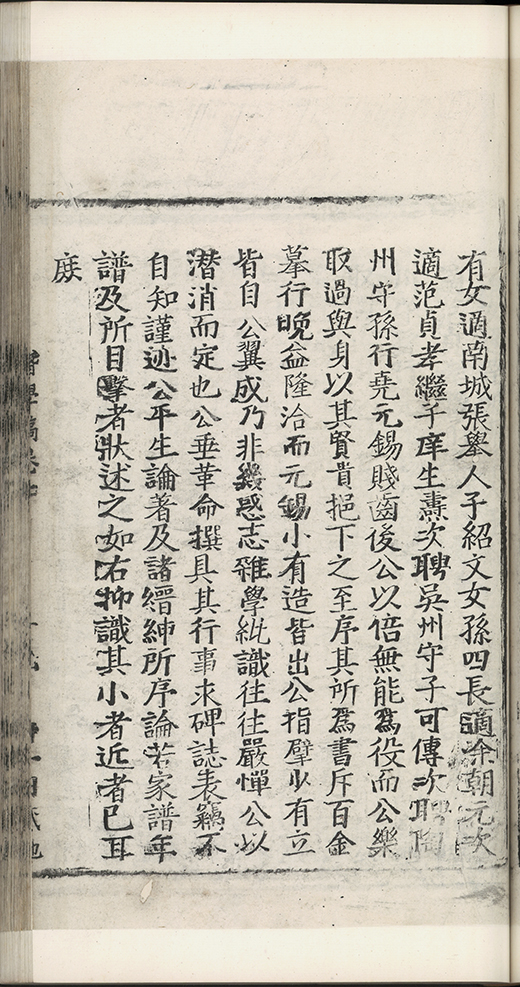 有女適南城張舉人子紹文女孫四長適涂朝元次
適范貞孝繼子庠生燾次聘吳州守子可傳次聘陶
州守孫行堯元錫賤齒後公以倍無能為役而公樂
取過與身以其賢貴挹下之至序其所為書斥百金
摹行晚益隆洽而元錫小有造皆出公指擘少有立
皆自公翼成乃非幾惑志雜學紕識往往嚴憚公以
潜消而定也公垂革命撰具其行事求碑誌表竊不
自知謹述公平生論著及諸縉紳所序論若家譜年
譜及所目擊者狀述之如右抑識其小者近者已耳
庻